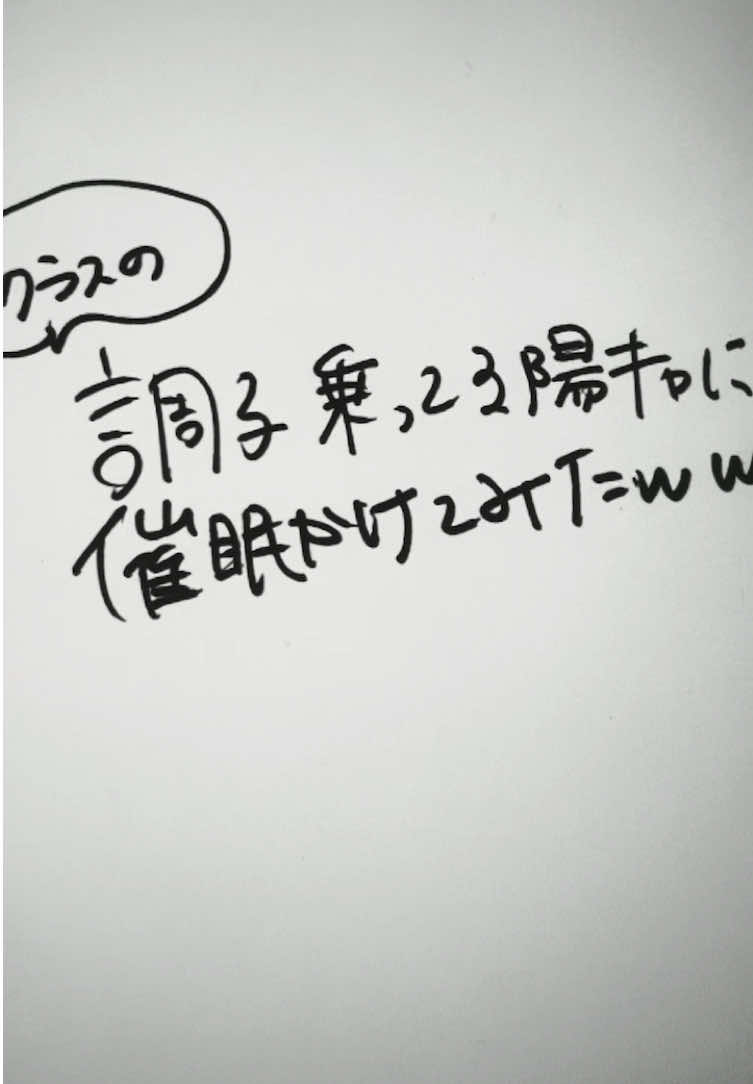 クラスの
調子乗ってる陽キャに
催眠かけてみたww